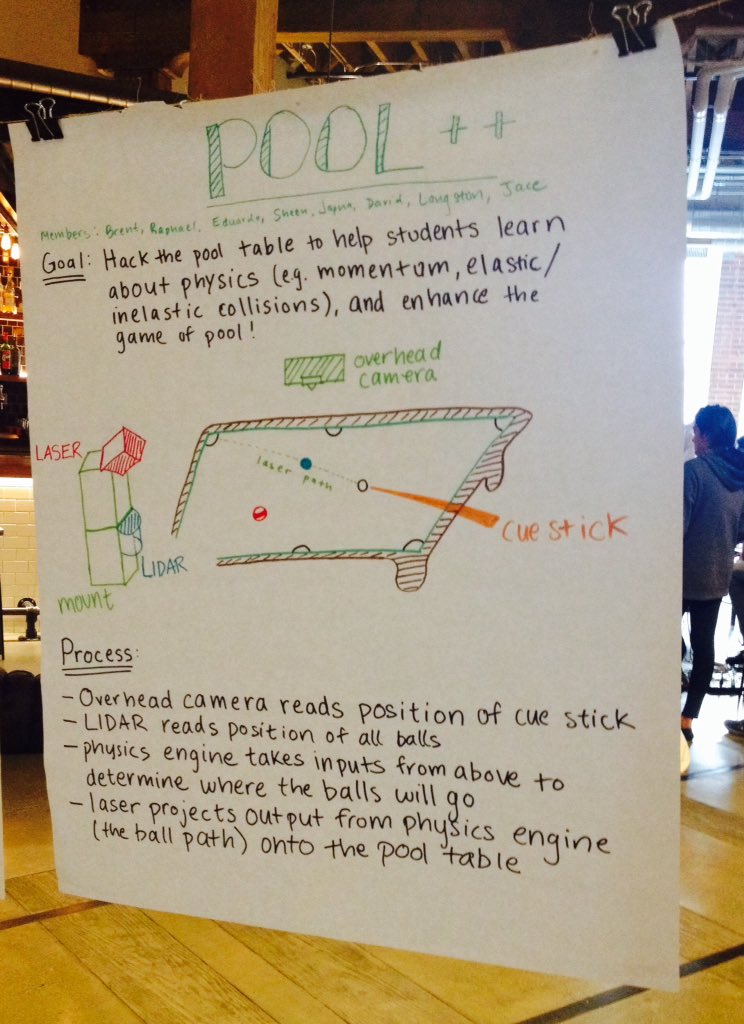 POOL ++
Members: Brent, Raphael, Eduardo, Sheen, Japna, David, Langston, Jace
Goal: Hack the pool table to help students learn
about physics (eg. momentum, elastic/
inelastic collisions), and enhance the
game of pool!
overhead
camera
LASER
laser path
cue stick
LIDAR
mount
Process:
- Overhead camera reads position of cue stick
- LIDAR reads position of all balls
- physics engine takes inputs from above to
determine where the balls will go
- laser projects output from physics engine
(the ball path) onto the pool table